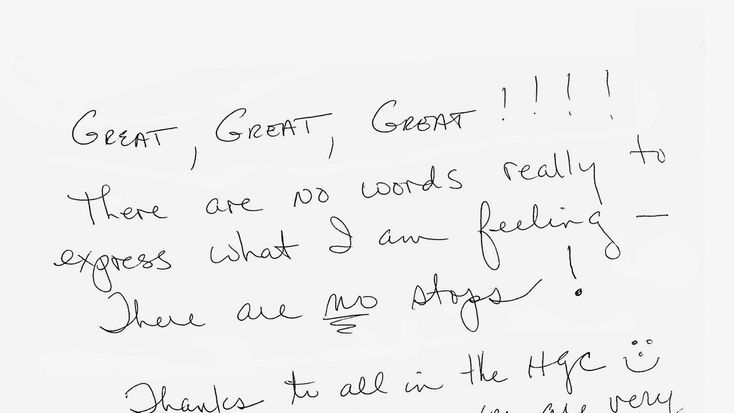 GREAT, GREAT, GREAT !!!!
There are no words really to
express what I am feeling —
There are no stops!
Thanks to all in the HGC
are very